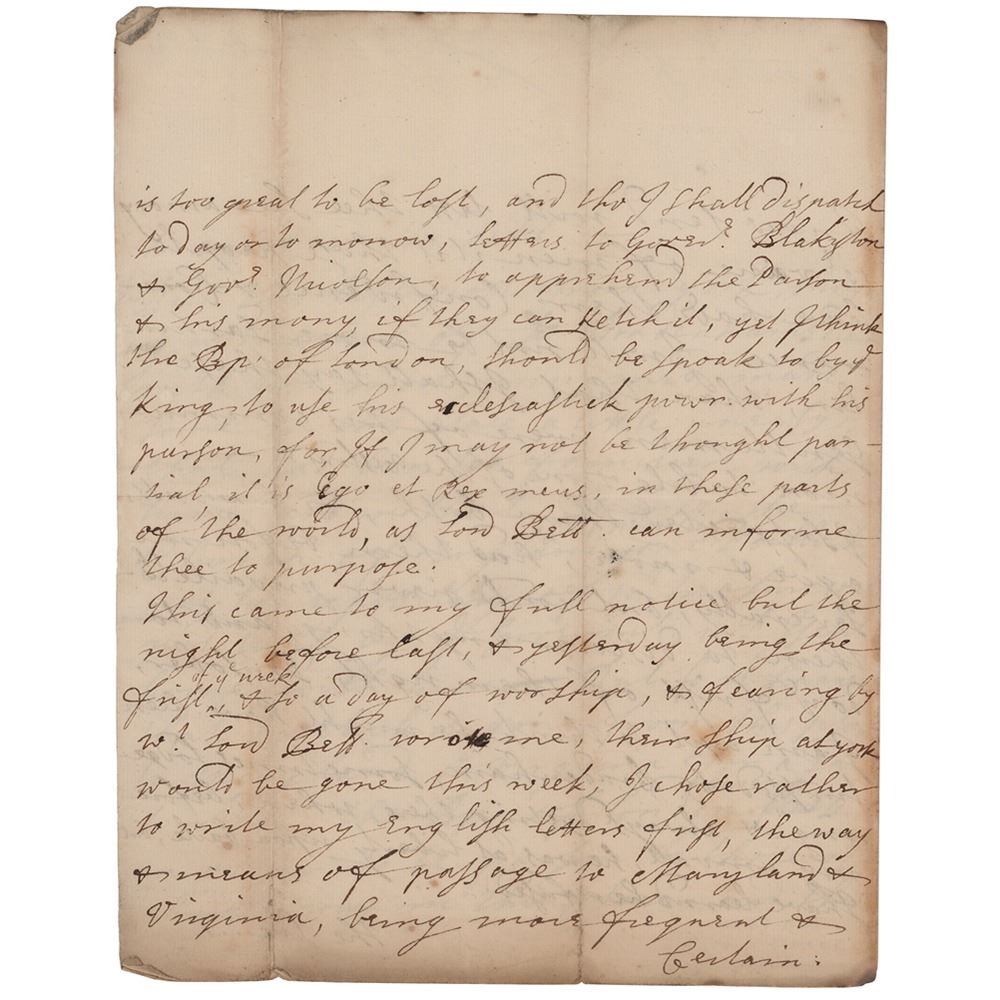 is too great to be lost, and tho I shall dispatch
to day or to morrow, letters to Goverr. Blakyston
& Govr. Nicolson, to apprehend the Parson
& his mony, if they can Ketch it, yet I think
the Bp. of London, should be spoak to by ye
King, to use his eclesiastick powr. with his
parson, for, If I may not be thought par-
tial, it is Ego et Rex meus, in these parts
of the world, as Lord Bell. can informe
thee to purpose.
This came to my full notice but the
night before last, & yesterday being the
first of ye week, & so a day of worship, & fearing by
wt. Lord Bell. wrote me, their ship at york
would be gone this week, I chose rather
to write my English letters first, the way
& means of passage to Maryland &
Virginia, being more frequent &
Certain: